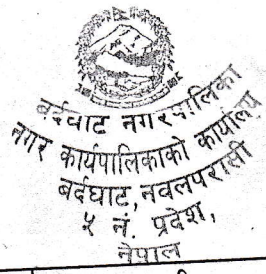 बर्दघाट नगरपालिका
नगर कार्यपालिकाको कार्यालय
बर्दघाट, नवलपरासी
५ नं. प्रदेश,
नेपाल